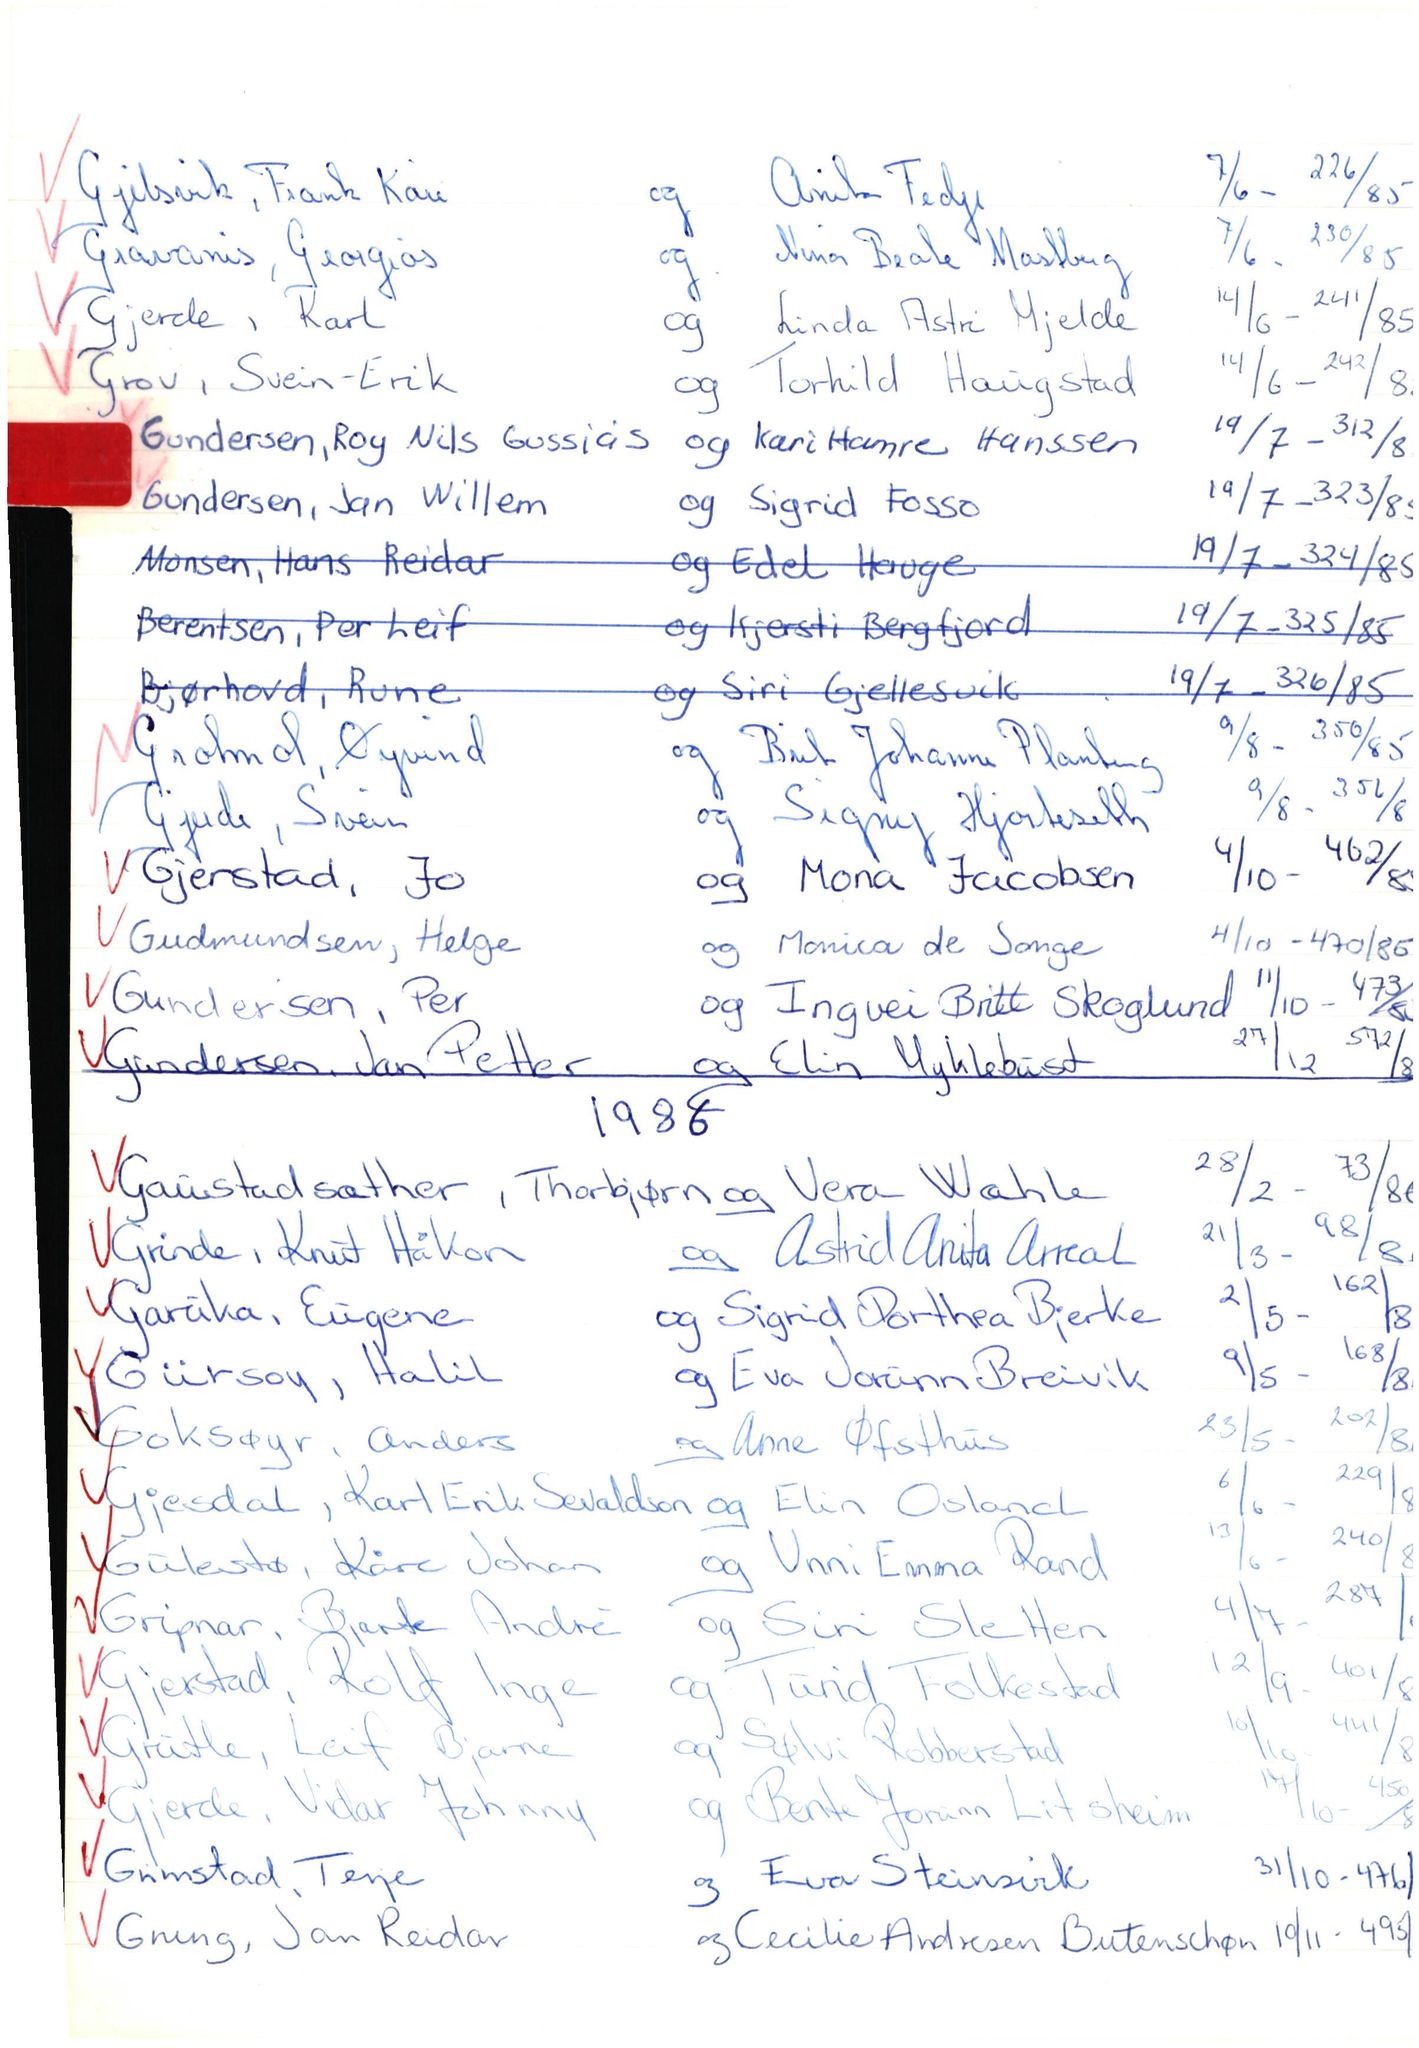 Gjilsvik, Frank Kåre og Anita Fedje 7/6 - 226/85
Gravanis, Georgios og Nina Beate Mastberg 7/6 - 230/85
Gjerde, Karl og Linda Astri Mjelde 14/6 - 241/85
Grov, Svein-Erik og Torhild Haugstad 14/6 - 242/8
Gundersen, Roy Nils Gussiås og Kari Hamre Hanssen 19/7 - 312/8
Gundersen, Jan Willem og Sigrid Fosso 19/7 - 323/85
Monsen, Hans Reidar og Edel Hauge 19/7 - 324/85
Berentsen, Per Leif og Kjersti Bergfjord 19/7 - 325/85
Bjørhovd, Rune og Siri Gjellesvik 19/7 - 326/85
Øyvind og Johanne 9/8 - 350/85
Gjerde, Svein og Signy 9/8 - /8
Gjerstad, Jo og Mona Jacobsen 4/10 - 462/85
Gudmundsen, Helge og Monica de Jonge 4/10 - 470/85
Gundersen, Per og Ingvei Britt Skoglund 11/10 - 473/8
Gundersen, Jan Petter og Elin Myklebust 27/12 572/8
1986
Gaustadsæther, Thorbjørn og Vera Wahle 28/2 - 73/86
Grinde, Knut Håkon og Astrid Anita Arreal 21/3 - 98/8
Garuka, Eugene og Sigrid Dorthea Bjerke 2/5 - 162/8
Gürsoy, Halil og Eva Jorunn Breivik 9/5 - 168/8
Goksøyr, Anders og Anne Øfsthus 23/5 - 202/8
Gjesdal, Karl Erik Sevaldson og Elin Osland 6/6 - 229/8
Gulestø, Kåre Johan og Unni Emma Rand 13/6 - 240/8
Gripnar, Bjarte André og Siri Sletten 4/7 - 287/
Gjerstad, Rolf Inge og Turid Folkestad 12/9 - 401/8
Grutle, Leif Bjarne og Sølvi Robberstad 10/10 - 441/8
Gjerde, Vidar Johnny og Bente Jorunn Litsheim 17/10 - 450/8
Grimstad, Terje og Eva Steinsvik 31/10 - 476/
Grung, Jan Reidar og Cecilie Andresen Butenschøn 19/11 - 495/